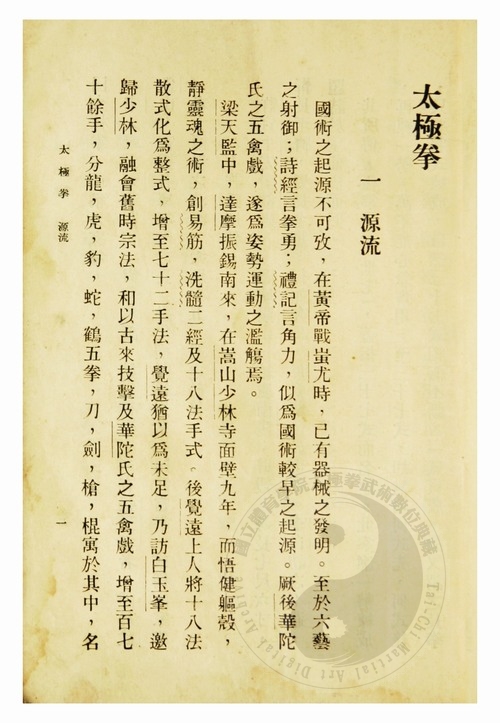 太極拳
一 源流
國術之起源不可攷，在黃帝戰蚩尤時，已有器械之發明。至於六藝
之射御；詩經言拳勇；禮記言角力，似爲國術較早之起源。厥後華陀
氏之五禽戲，遂爲姿勢運動之濫觴焉。
梁天監中，達摩振錫南來，在嵩山少林寺面壁九年，而悟健軀殼，
靜靈魂之術，創易筋，洗髓二經及十八法手式。後覺遠上人將十八法
散式化爲整式，增至七十二手法，覺遠猶以爲未足，乃訪白玉峯，邀
歸少林，融會舊時宗法，和以古來技擊及華陀氏之五禽戲，增至百七
十餘手，分龍，虎，豹，蛇，鶴五拳，刀，劍，槍，棍寓於其中，名
太極拳 源流
一
國立體育學院太極拳武術數位典藏
Tai-Chi Martial Art Digital Archives